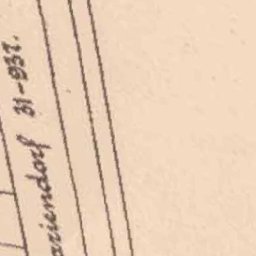 ariendorf 31-937.